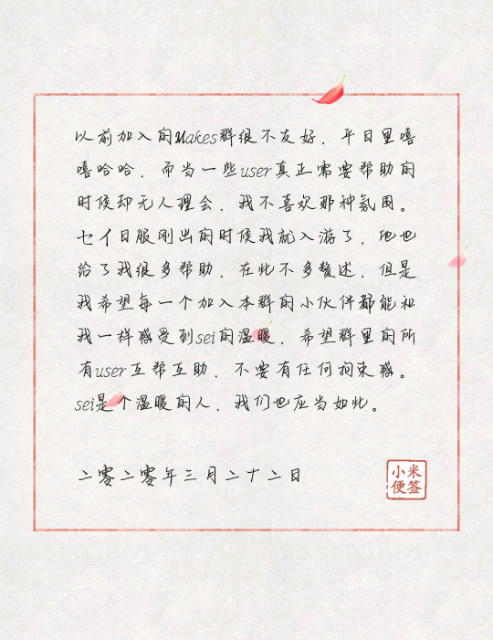 以前加入的Makes群很不友好，平日里嘻
嘻哈哈，而当一些user真正需要帮助的
时候却无人理会，我不喜欢那种氛围。
七イ日服刚出的时候我就入游了，他也
给了我很多帮助，在此不多赘述，但是
我希望每一个加入本群的小伙伴都能和
我一样感受到sei的温暖，希望群里的所
有user互帮互助，不要有任何拘束感。
sei是个温暖的人，我们也应当如此。
二零二零年三月二十二日
小米
便签